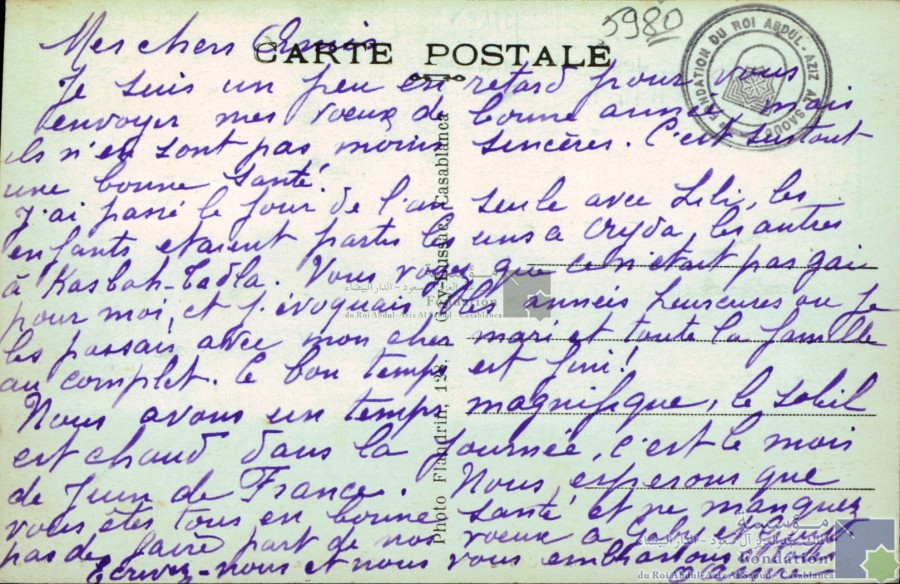 5980
CARTE POSTALE
FONDATION DU ROI ABDUL-AZIZ AL SAOUD
Mes chers Amis
Je suis un peu en retard pour vous
envoyer mes voeux de bonne année mais
ils n'en sont pas moins sincères. C'est surtout
une bonne santé.
J'ai passé le jour de l'an seule avec Lili, les
enfants etaient partis les uns a Oujda, les autres
à Kasbah-Tadla. Vous voyez que ce n'etait pas gai
pour moi, et j'évoquais les années heureuses ou je
les passais avec mon cher mari et toute la famille
au complet. Le bon temps est fini!
Nous avons un temps magnifique, le soleil
est chaud dans la journée, c'est le mois
de Juin de France. Nous esperons que
vous êtes tous en bonne santé et ne manquez
pas de faire part de nos voeux a
Ecrivez-nous et nous vous embrassons
Photo Flandrin, 128, Gay-Lussac, Casablanca
Fondation
du Roi Abdul-Aziz Al Saoud - Casablanca
مؤسسة
الملك عبد العزيز آل سعود - الدار البيضاء
Fondation
du Roi Abdul-Aziz Al Saoud - Casablanca